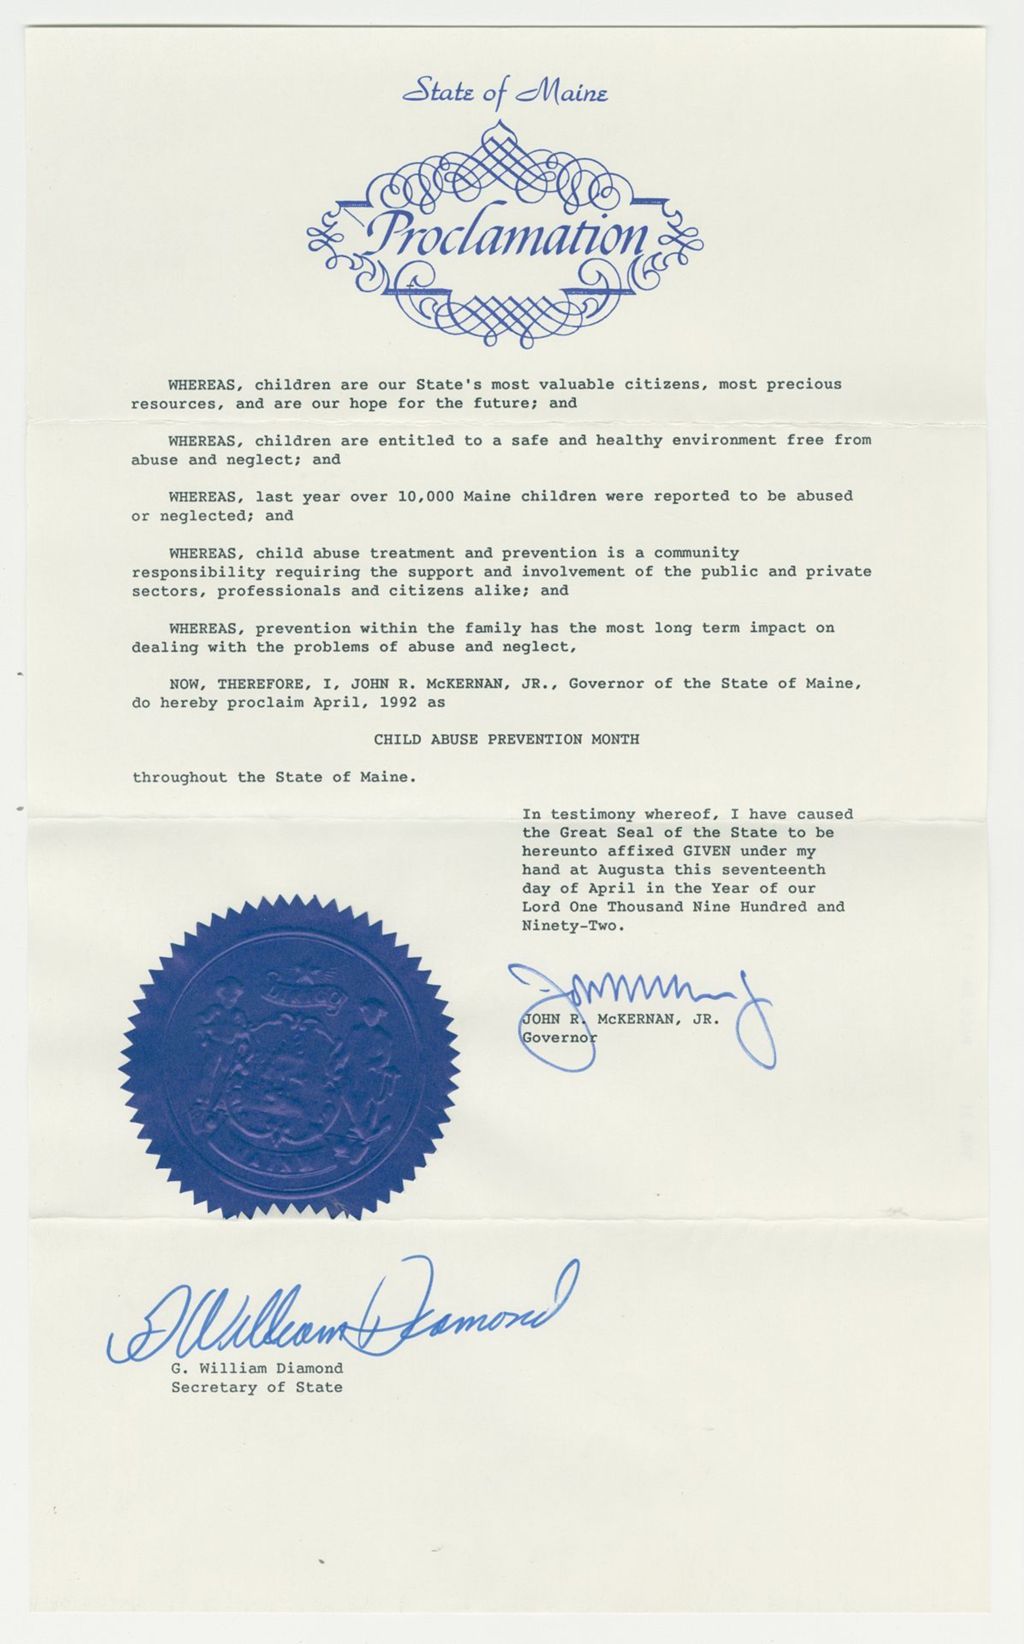 State of Maine
Proclamation
WHEREAS, children are our State's most valuable citizens, most precious
resources, and are our hope for the future; and
WHEREAS, children are entitled to a safe and healthy environment free from
abuse and neglect; and
WHEREAS, last year over 10,000 Maine children were reported to be abused
or neglected; and
WHEREAS, child abuse treatment and prevention is a community
responsibility requiring the support and involvement of the public and private
sectors, professionals and citizens alike; and
WHEREAS, prevention within the family has the most long term impact on
dealing with the problems of abuse and neglect,
NOW, THEREFORE, I, JOHN R. McKERNAN, JR., Governor of the State of Maine,
do hereby proclaim April, 1992 as
CHILD ABUSE PREVENTION MONTH
throughout the State of Maine.
In testimony whereof, I have caused
the Great Seal of the State to be
hereunto affixed GIVEN under my
hand at Augusta this seventeenth
day of April in the Year of our
Lord One Thousand Nine Hundred and
Ninety-Two.
DIRIGO
MAINE
JOHN R. McKERNAN, JR.
Governor
G William Diamond
G. William Diamond
Secretary of State